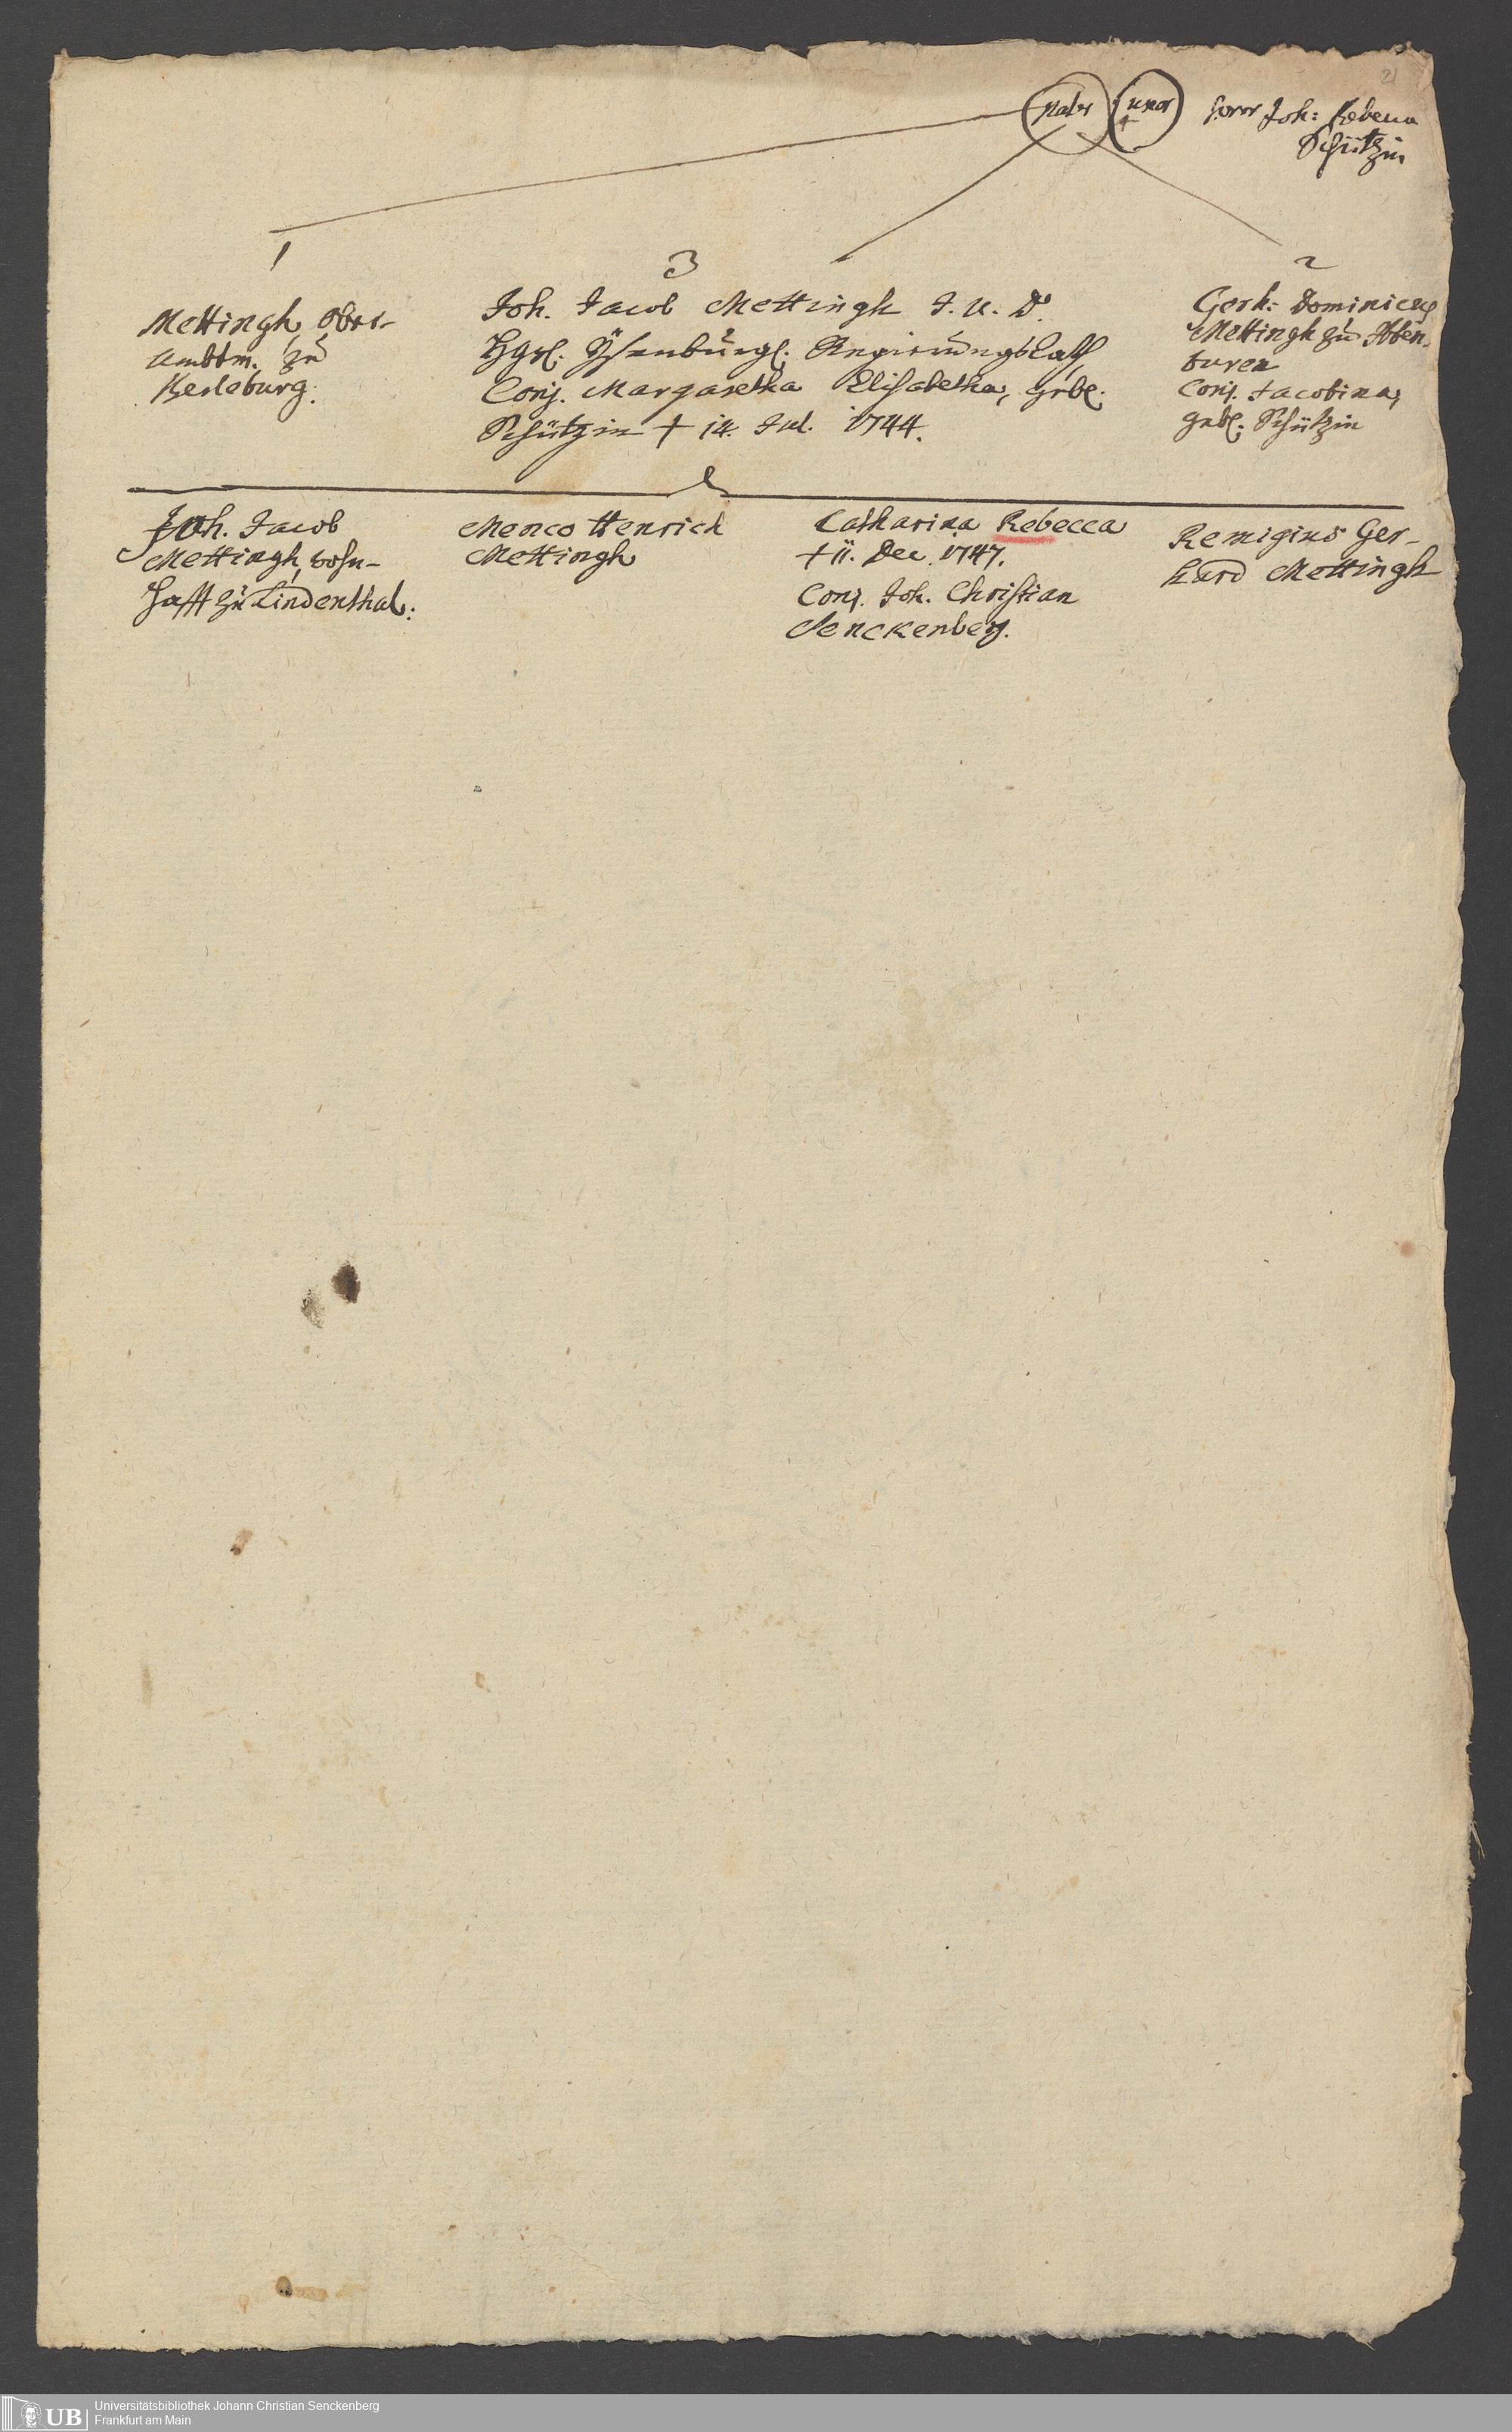 21
Pater uxor Soror Joh: Rebecca
+ Schützin
1
3
2
Mettingh, Ober-
Ambtm. zu
Berleburg.
Joh. Jacob Mettingh J. U. D.
Hgrl. Ysenburgl. Regierungs Rath
Conj. Margaretha Elisabetha, gebl.
Schützin + 14. Jul. 1744.
Gerh: Dominicus
Mettingh zu Ibben-
buren
Conj. Jacobina,
gebl. Schützin
Joh. Jacob
Mettingh, wohn-
hafft zu Lindenthal.
Menco Henrich
Mettingh
Catharina Rebecca
+ 11. Dec. 1747.
Conj. Joh. Christian
Senckenberg.
Remigius Ger-
hard Mettingh
UB
Universitätsbibliothek Johann Christian Senckenberg
Frankfurt am Main